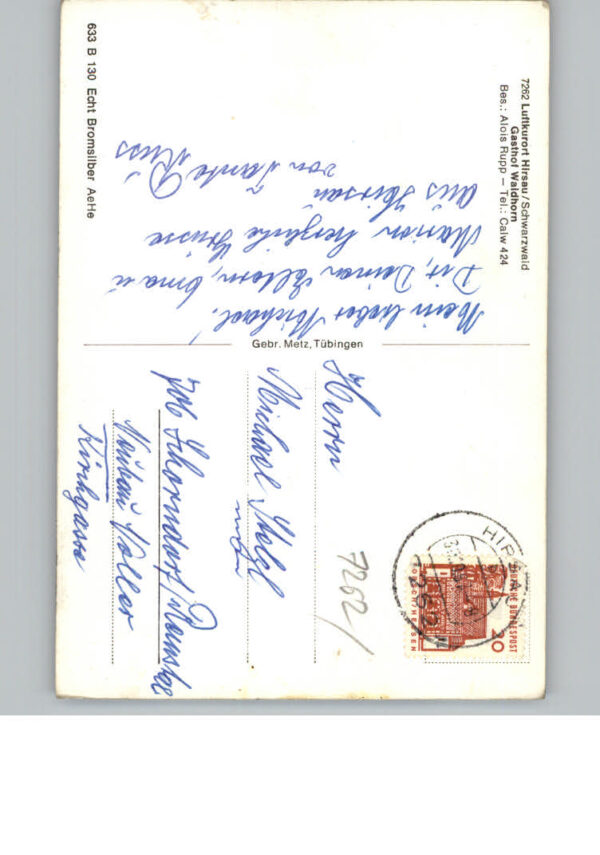 7262 Luftkurort Hirsau/Schwarzwald
Gasthof Waldhorn
Bes.: Alois Rupp – Tel.: Calw 424
Mein lieber Michael!
Dir, Deinen Eltern, Oma u
Marion herzliche Grüsse
aus Hirsau
von Tante
633 B 130 Echt Bromsilber AeHe
Gebr. Metz, Tübingen
HIRSAU
20
DEUTSCHE BUNDESPOST
TORHALLE LORSCH/HESSEN
7262/
Herrn
Michael
706 Schorndorf/Remstal
Kirchgasse